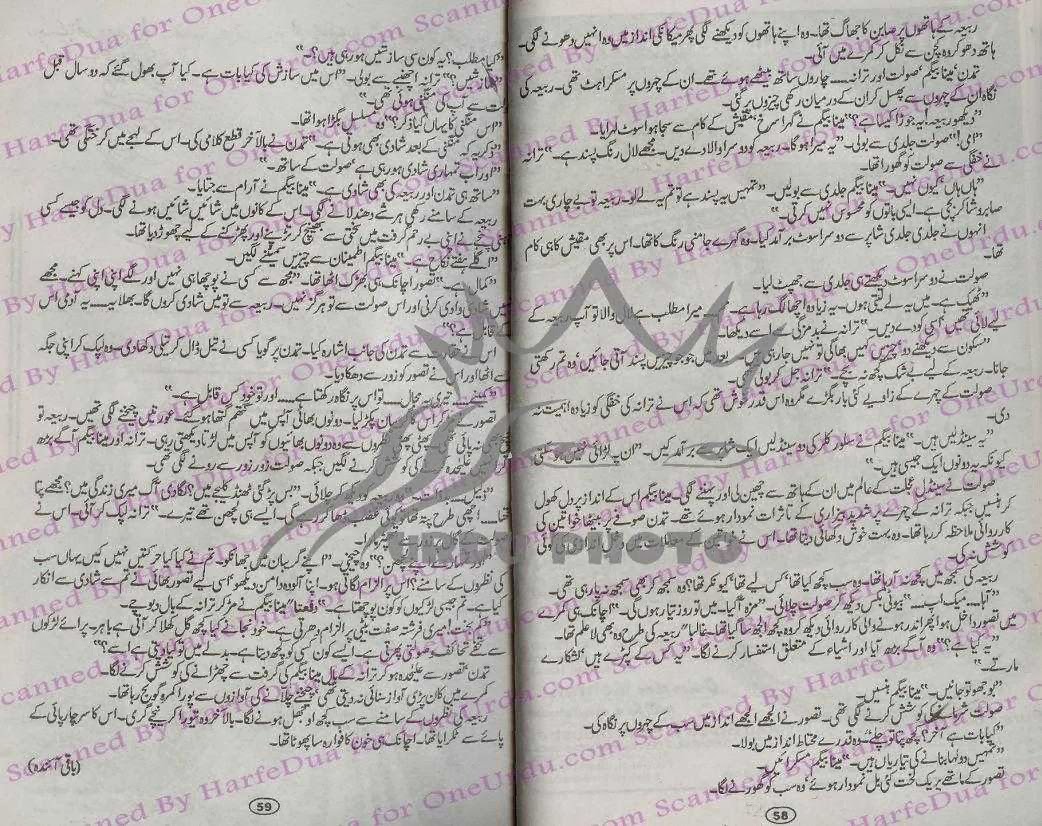 ربیعہ کے ہاتھوں پر صابن کا جھاگ تھا۔ وہ اپنے ہاتھوں کو دیکھنے لگی پھر میکانکی انداز میں وہ انہیں دھونے لگی۔
ہاتھ دھو کر وہ کچن سے نکل کر کمرے میں آئی۔
تمدن، مینا بیگم، صولت اور ترانہ..... چاروں ساتھ بیٹھے ہوئے تھے۔ ان کے چہروں پر مسکراہٹ تھی۔ ربیعہ کی
نگاہ ان کے چہروں سے پھسل کر ان کے درمیان رکھی چیزوں پر گئی۔
"دیکھو ربیعہ! یہ جوڑا کیسا ہے؟" مینا بیگم نے گہرا سرخ، مقیش کے کام سے سجا ہوا سوٹ لہرایا۔
"امی!" صولت جلدی سے بولی۔ "یہ میرا ہوگا۔ ربیعہ کو دوسرا والا دے دیں۔ مجھے لال رنگ پسند ہے۔" ترانہ
نے خفگی سے صولت کو گھورا تھا۔
"ہاں ہاں کیوں نہیں۔" مینا بیگم جلدی سے بولیں۔ "تمہیں یہ پسند ہے تو تم یہ لے لو۔ ربیعہ تو بے چاری بہت
صابر و شاکر بچی ہے۔ ایسی باتوں کو محسوس نہیں کرتی۔"
انہوں نے جلدی جلدی شاپر سے دوسرا سوٹ برآمد کیا۔ وہ گہرے جامنی رنگ کا تھا۔ اس پر بھی مقیش کا ہی کام
تھا۔
صولت نے دوسرا سوٹ دیکھتے ہی جلدی سے جھپٹ لیا۔
"ٹھیک ہے۔ میں یہ لے لیتی ہوں۔ یہ زیادہ اچھا لگ رہا ہے۔ میرا مطلب ہے لال والا تو آپ ربیعہ کے
لیے لائی تھیں، اسی کو دے دیں۔" ترانہ نے بدمزگی سے اسے دیکھا۔
"سکون سے دیکھنے دو، چیزیں کہیں بھاگی تو نہیں جا رہی ہیں۔ بعد میں جو جو چیزیں پسند آتی جائیں، وہ تم رکھتی
جانا۔ ربیعہ کے لیے بے شک کچھ نہ بچے۔" ترانہ جل کر بولی تھی۔
صولت کے چہرے کے زاویے کئی بار بگڑے مگر وہ اس قدر خوش تھی کہ اس نے ترانہ کی خفگی کو زیادہ اہمیت نہ
دی۔
"یہ سینڈلیں ہیں۔" مینا بیگم نے سلور کلر کی دو سینڈلیں ایک شاپر سے برآمد کیں۔ "ان پہ لڑائی نہیں ہو سکتی
کیونکہ یہ دونوں ایک جیسی ہیں۔"
صولت نے سینڈل عجلت کے عالم میں ان کے ہاتھ سے چھین لی اور پہننے لگی۔ مینا بیگم اس کے انداز پر دل کھول
کر ہنسیں جبکہ ترانہ کے چہرے پر شدید بیزاری کے تاثرات نمودار ہوئے تھے۔ تمدن صوفے پر بیٹھا خواتین کی
کارروائی ملاحظہ کر رہا تھا۔ وہ بہت خوش دکھائی دیتا تھا۔ اس نے خواتین کے معاملات میں دخل اندازی کی کوئی
کوشش نہ کی۔
ربیعہ کی سمجھ میں کچھ نہ آ رہا تھا۔ وہ سب کچھ کیا تھا، کس لیے تھا، کیونکر تھا؟ وہ سمجھ کر بھی سمجھ نہ پا رہی تھی۔
"آہا... میک اپ....." بیوٹی بکس دیکھ کر صولت چلائی۔ "مزہ آ گیا۔ میں تو روز تیار ہوں گی۔" اچانک ہی کمرے
میں تصور داخل ہوا پھر اندر ہونے والی کارروائی دیکھ کر وہ کچھ الجھ سا گیا تھا۔ غالباً، ربیعہ کی طرح وہ بھی لاعلم تھا۔
"یہ کیا ہے؟" وہ آگے بڑھ آیا اور اشیاء کے متعلق استفسار کرنے لگا۔ "یہ کس کے کپڑے ہیں، لشکارے
مارتے۔"
"بوجھو تو جانیں۔" مینا بیگم ہنسیں۔
صولت شرمانے کی کوشش کرنے لگی تھی۔ تصور نے الجھے الجھے انداز میں سب کے چہروں پر نگاہ کی۔
"کیا بات ہے آخر؟ کچھ پتا تو چلے۔" وہ قدرے محتاط انداز میں بولا۔
"تمہیں دولہا بنانے کی تیاریاں ہیں۔" مینا بیگم مسکرائیں۔
تصور کے ماتھے پر یک لخت کئی بل نمودار ہوئے، وہ سب کو گھورنے لگا۔
58
"کیا مطلب؟ یہ کون سی سازشیں ہو رہی ہیں؟"
"سازشیں؟" ترانہ اچنبھے سے بولی۔ "اس میں سازش کی کیا بات ہے۔ کیا آپ بھول گئے کہ دو سال قبل
صولت سے آپ کی منگنی ہوئی تھی۔"
"اس منگنی کا یہاں کیا ذکر؟" وہ مسلسل بگڑا ہوا تھا۔
"ذکر یہ کہ منگنی کے بعد شادی بھی ہوتی ہے۔" تمدن نے بالآخر قطع کلامی کی۔ اس کے لہجے میں کرختگی تھی۔
"اور اب تمہاری شادی ہو رہی ہے، صولت کے ساتھ۔"
"ساتھ ہی تمدن اور ربیعہ کی بھی شادی ہے۔" مینا بیگم نے آرام سے جتایا۔
ربیعہ کے سامنے رکھی ہر شے دھندلانے لگی۔ اس کے کانوں میں شائیں شائیں ہونے لگی۔ دل کو جیسے کسی
پنجے نے اپنی بے رحم گرفت میں سختی سے بھینچ کر تڑپنے اور پھڑکنے کے لیے چھوڑ دیا تھا۔
"اگلے ہفتے نکاح ہے۔" مینا بیگم اطمینان سے چیزیں سمیٹنے لگیں۔
"کمال ہے۔" تصور اچانک ہی بھڑک اٹھا تھا۔ "مجھ سے کسی نے پوچھا ہی نہیں اور لگے اپنی اپنی کہنے۔ مجھے
نہیں شادی وادی کرنی اور اس صولت سے تو ہرگز نہیں۔ ربیعہ سے تو میں شادی کروں گا۔ بھلا یہ..... یہ آدمی اس
کے قابل ہے؟"
اس نے حقارت سے تمدن کی جانب اشارہ کیا۔ تمدن پر گویا کسی نے تیل ڈال کر تیلی دکھا دی۔ وہ لپک کر اپنی جگہ
سے اٹھا اور اس نے تصور کو زور سے دھکا دیا۔
"تیری یہ مجال..... تو اس پر نگاہ رکھتا ہے..... اور تو خود کس قابل ہے۔"
تصور نے اس کا گریبان پکڑ لیا۔ دونوں بھائی آپس میں گتھم گتھا ہو گئے۔ عورتیں چیخنے لگی تھیں۔ ربیعہ تو
پھٹی پھٹی نظروں سے وہ دونوں بھائیوں کو آپس میں لڑتا دیکھتی رہی۔ ترانہ اور مینا بیگم آگے بڑھ
کر انہیں علیحدہ کرنے کی کوشش کرنے لگیں جبکہ صولت زور زور سے رونے لگی تھی۔
ربیعہ کو دیکھ کر چلائی۔ "بس پڑ گئی ٹھنڈ کلیجے میں؟ لگا دی آگ میری زندگی میں؟ مجھے پتا
تھا..... اچھی طرح پتہ تھا ایسے ہی لچھن تھے تیرے۔" ترانہ لپک کر آئی۔ اس نے
"وہ چیخی۔ "اپنے گریبان میں جھانکو۔ تم نے کیا کیا حرکتیں نہیں کیں یہاں سب
کی نظروں کے سامنے؟ اس پر الزام لگاتی ہو۔ اپنا آلودہ دامن دیکھو، اسی لیے تصور بھائی نے تم سے شادی سے انکار
کیا ہے۔ تم جیسی لڑکیوں کو کون پوچھتا ہے۔" دفعتاً مینا بیگم نے مڑ کر ترانہ کے بال دبوچے۔
"کم بخت! میری فرشتہ صفت بیٹی پر الزام دھرتی ہے۔ خود نجانے کیا کچھ گل کھلا کر آتی ہے باہر۔ پرائے لڑکوں
سے تحفے تحائف وصولتی پھرتی ہے۔ ایسے کون کسی کو کچھ دیتا ہے۔ بدلے میں تو کیا دیتی ہے اسے؟"
تمدن، تصور سے علیحدہ ہو کر ترانہ کے بال مینا بیگم کی گرفت سے چھڑانے کی کوشش کرنے لگا۔
کمرے میں کان پڑی آواز سنائی نہ دیتی تھی، چیخنے چلانے کی آوازوں سے پورا کمرہ گونج رہا تھا۔
ربیعہ کی نظروں کے سامنے سے سب کچھ اوجھل ہونے لگا۔ بالآخر وہ تیورا کر نیچے گری۔ اس کا سر چارپائی کے
پائے سے ٹکرایا تھا۔ اچانک ہی خون کا فوارہ سا پھوٹا تھا۔
(باقی آئندہ)
59
URDU PHOTO
Scanned By HarfeDua for OneUrdu.com